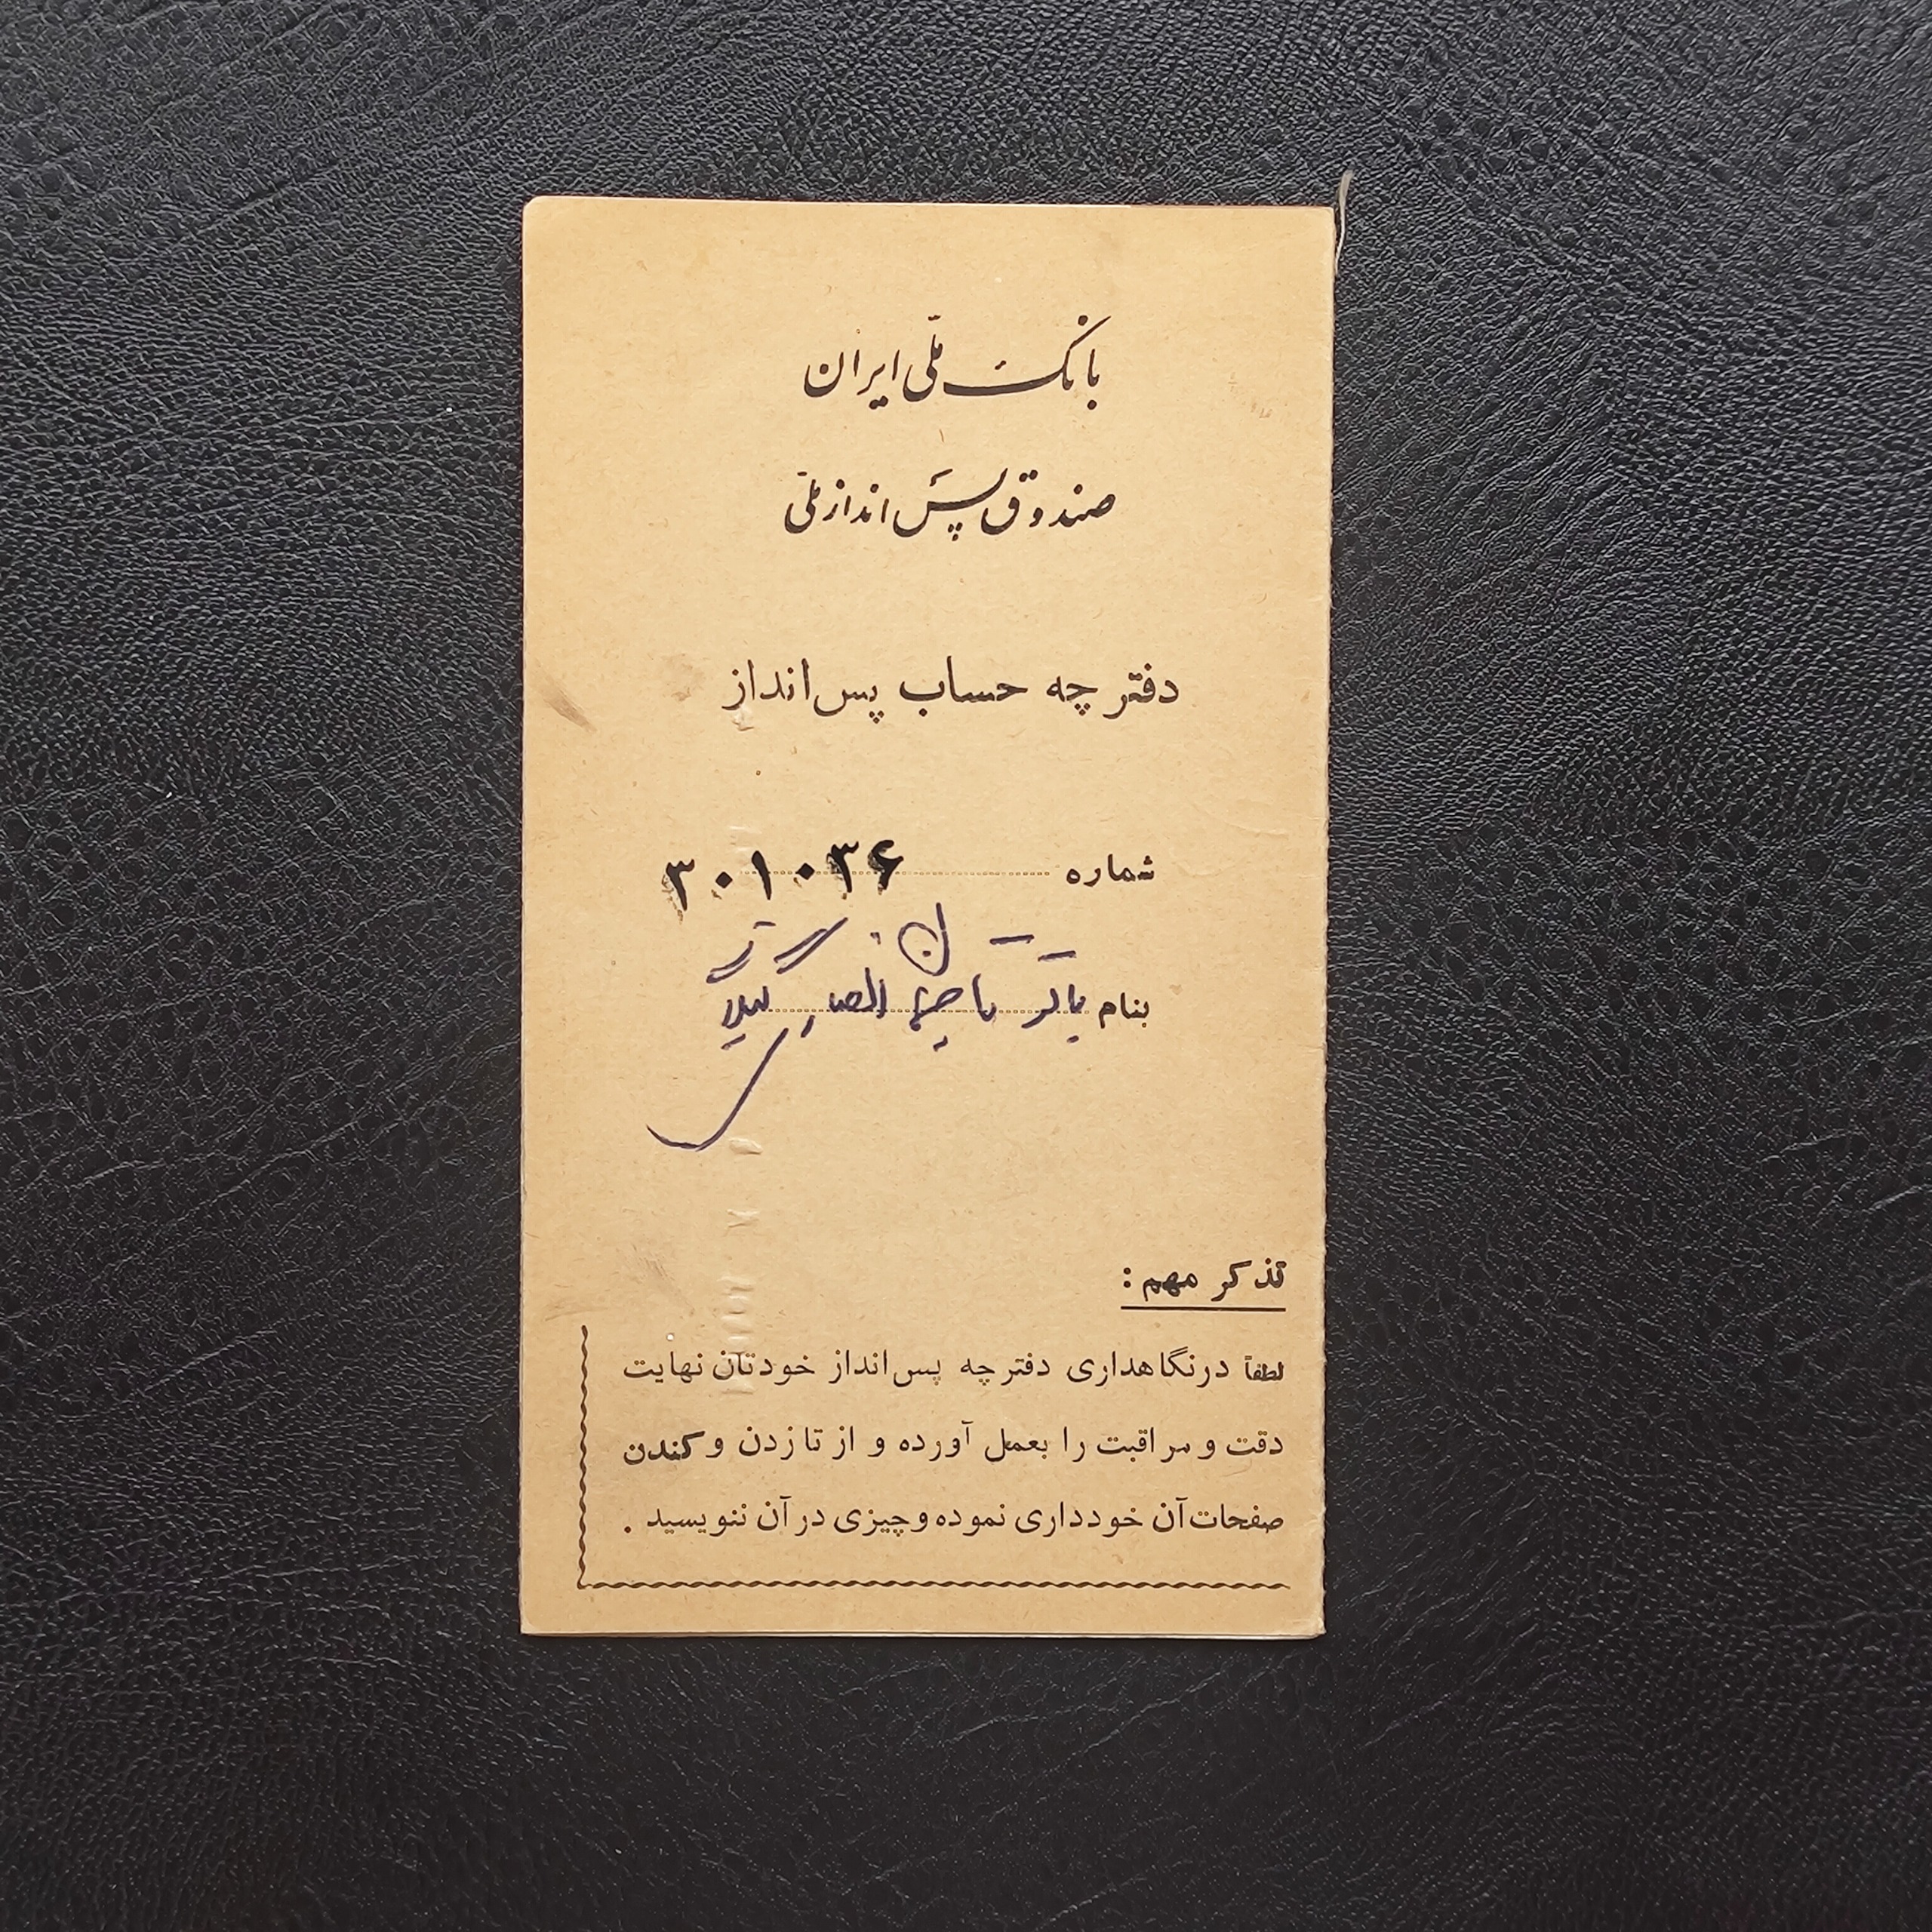 بانک ملّی ایران
صندوق پس انداز ملّی
دفترچه حساب پس‌انداز
شماره ۳۰۱۰۳۶
بنام
تذکر مهم :
لطفاً در نگاهداری دفترچه پس‌انداز خودتان نهایت
دقت و مراقبت را بعمل آورده و از تا زدن و کندن
صفحات آن خودداری نموده و چیزی در آن ننویسید .